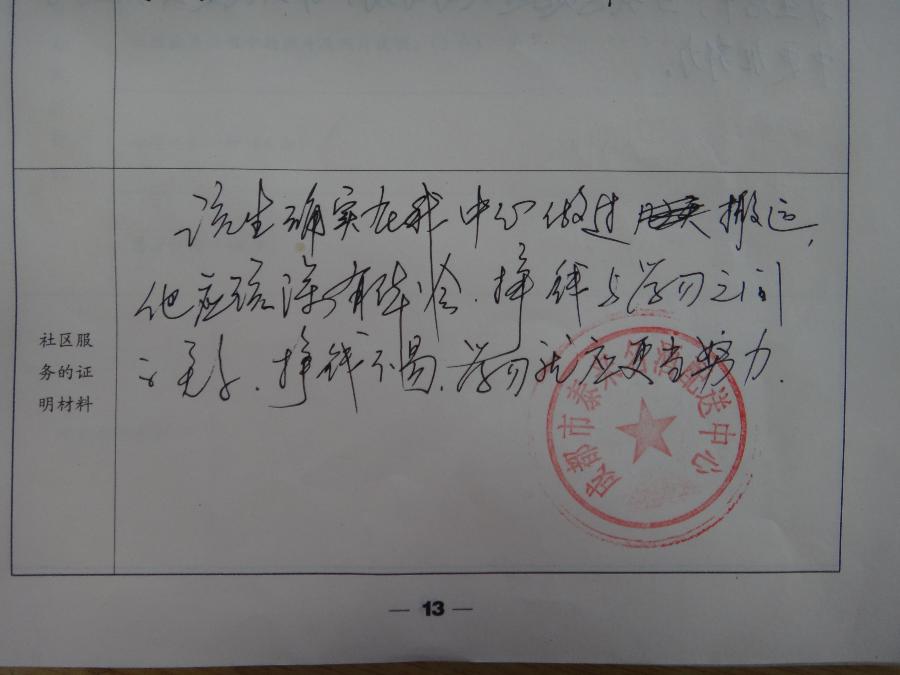 该生确实在我中心做过搬运,
他应该深有体会.挣钱与学习之间
挣钱不易.学习就应更当努力.
社区服
务的证
明材料
成都市泰
配送中心
— 13 —